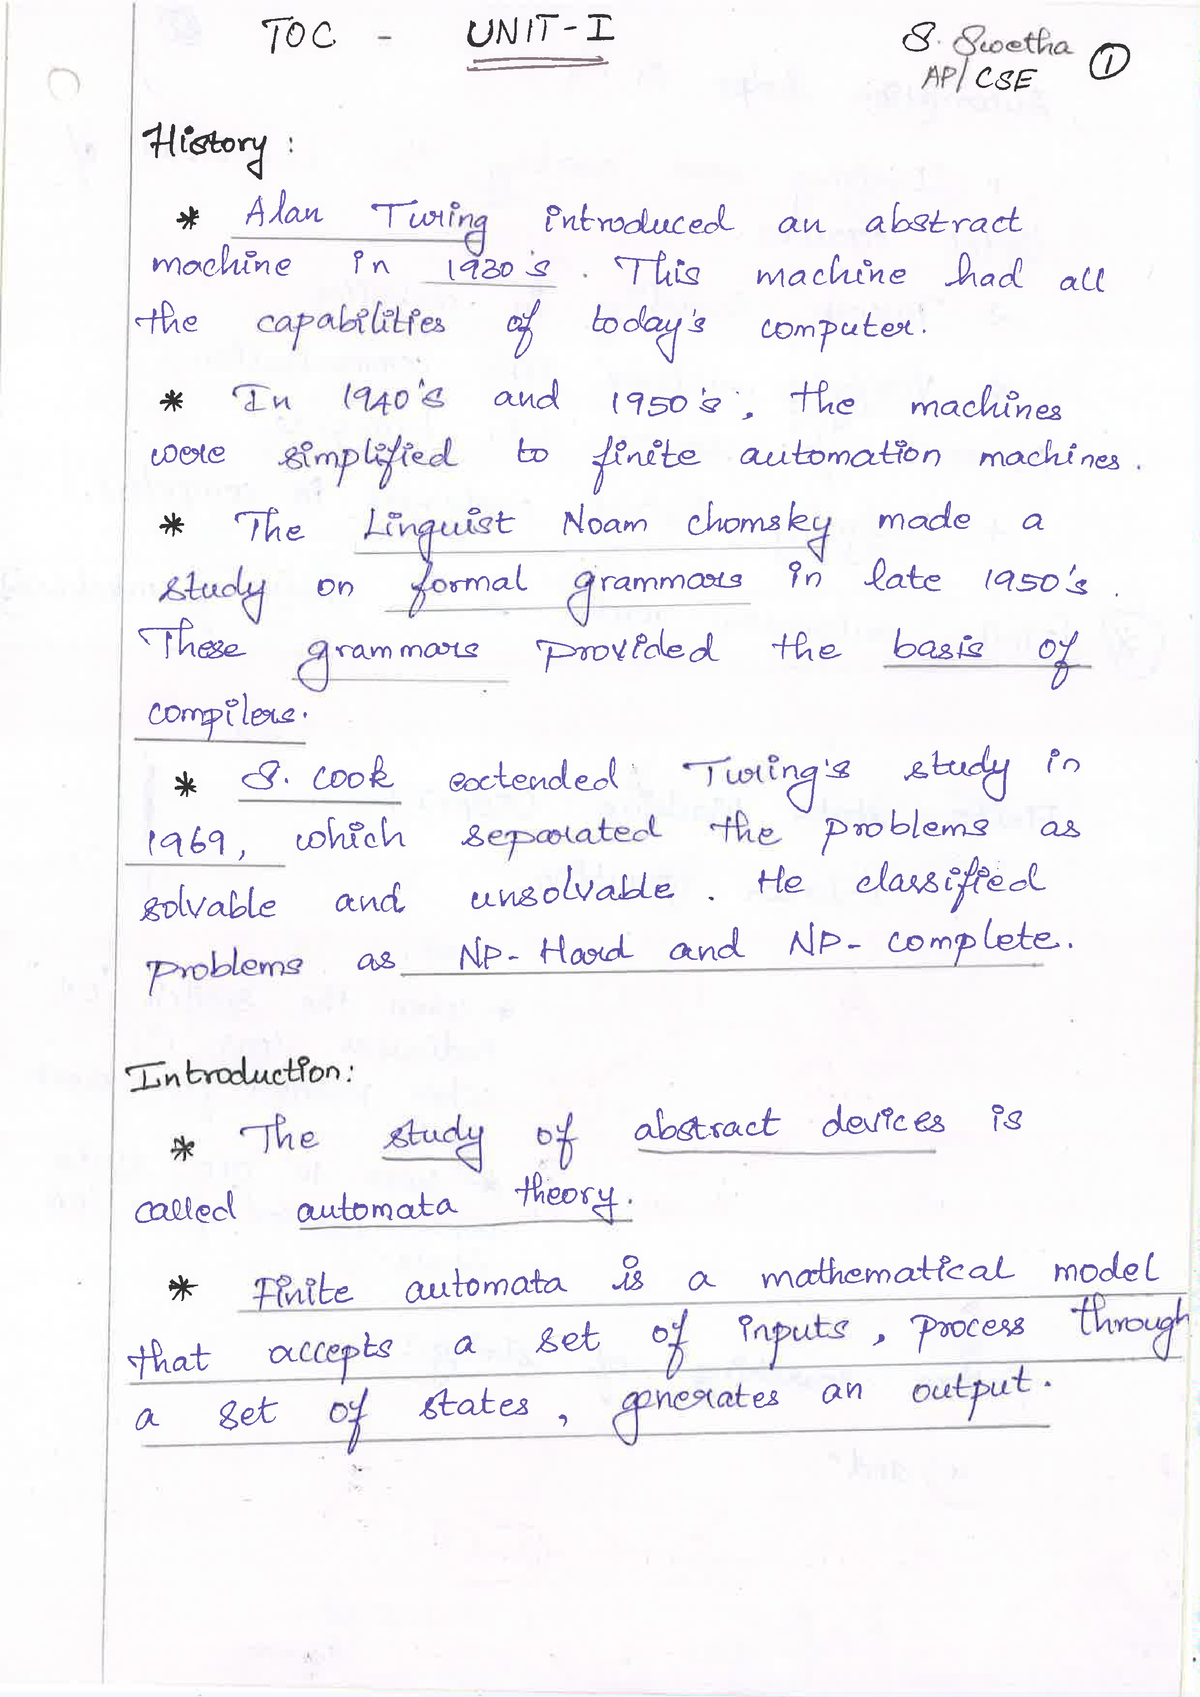 TOC - UNIT-I
S. Swetha
AP/CSE
1
History :
* Alan Turing introduced an abstract
machine in 1930's . This machine had all
the capabilities of today's computer.
* In 1940's and 1950's, the machines
were simplified to finite automation machines.
* The Linguist Noam chomsky made a
study on formal grammars in late 1950's .
These grammars provided the basis of
compilers.
* S. cook extended Turing's study in
1969, which separated the problems as
solvable and unsolvable . He classified
problems as NP-Hard and NP-complete.
Introduction:
* The study of abstract devices is
called automata theory.
* Finite automata is a mathematical model
that accepts a set of inputs, process through
a set of states, generates an output.